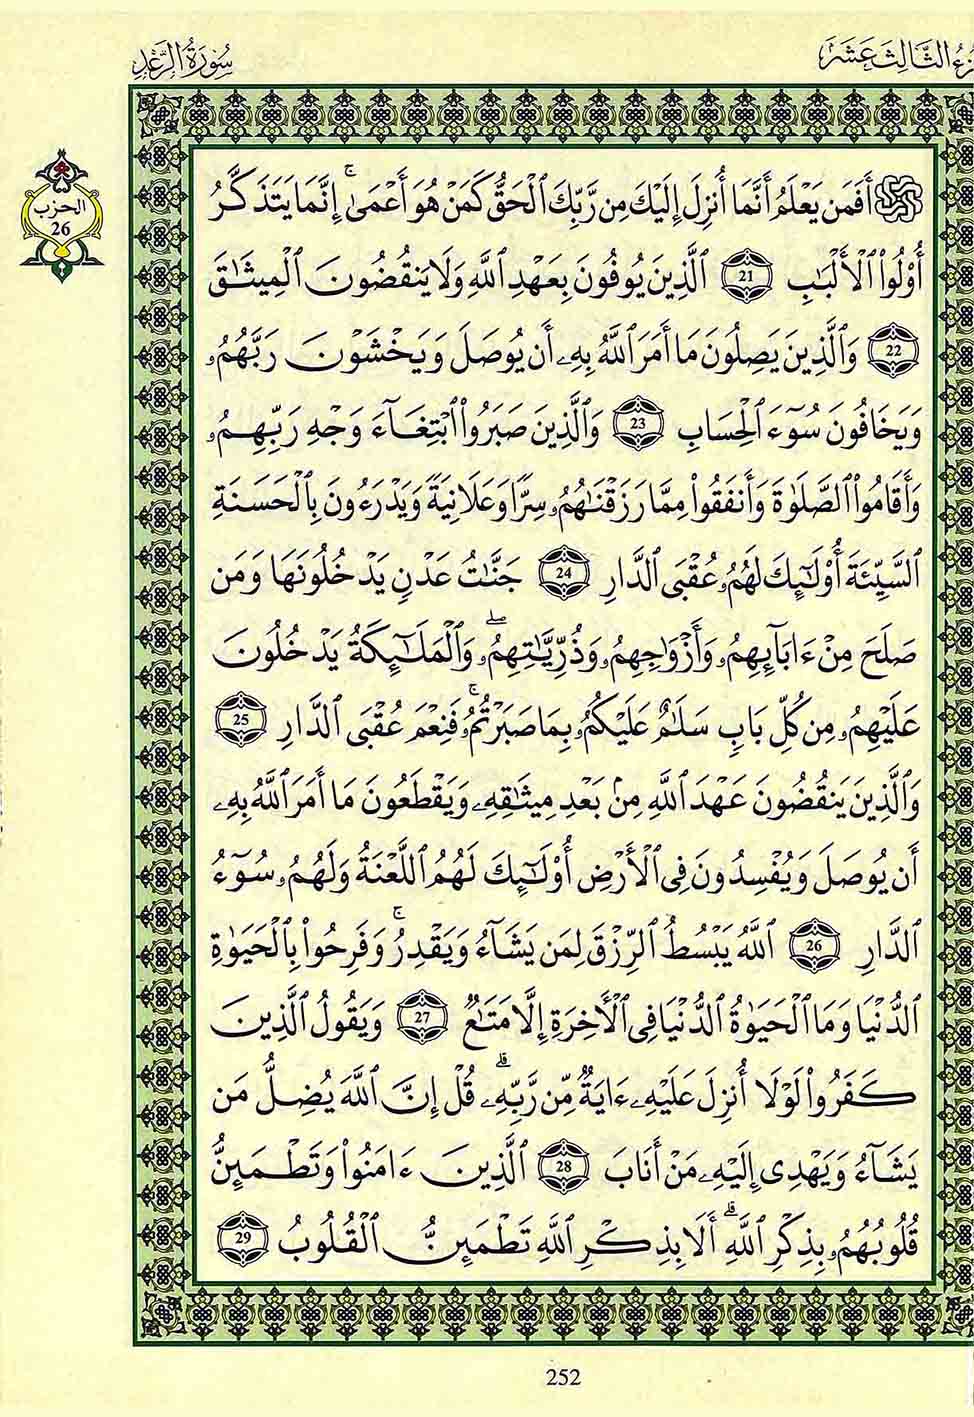 سُورَةُ الرَّعْدِ
الثَّالِثَ عَشَرَ
الحزب
26
أَفَمَن يَعْلَمُ أَنَّمَا أُنزِلَ إِلَيْكَ مِن رَّبِّكَ ٱلْحَقُّ كَمَنْ هُوَ أَعْمَىٰٓۚ إِنَّمَا يَتَذَكَّرُ
أُوْلُواْ ٱلْأَلْبَٰبِ 21 ٱلَّذِينَ يُوفُونَ بِعَهْدِ ٱللَّهِ وَلَا يَنقُضُونَ ٱلْمِيثَٰقَ
22 وَٱلَّذِينَ يَصِلُونَ مَا أَمَرَ ٱللَّهُ بِهِۦ أَن يُوصَلَ وَيَخْشَوْنَ رَبَّهُمُۥ
وَيَخَافُونَ سُوٓءَ ٱلْحِسَابِ 23 وَٱلَّذِينَ صَبَرُواْ ٱبْتِغَآءَ وَجْهِ رَبِّهِمُۥ
وَأَقَامُواْ ٱلصَّلَوٰةَ وَأَنفَقُواْ مِمَّا رَزَقْنَٰهُمُۥ سِرًّا وَعَلَانِيَةً وَيَدْرَءُونَ بِٱلْحَسَنَةِ
ٱلسَّيِّئَةَ أُوْلَٰٓئِكَ لَهُمُۥ عُقْبَى ٱلدَّارِ 24 جَنَّٰتُ عَدْنٍ يَدْخُلُونَهَا وَمَن
صَلَحَ مِنْ ءَابَآئِهِمُۥ وَأَزْوَٰجِهِمُۥ وَذُرِّيَّٰتِهِمُۥۖ وَٱلْمَلَٰٓئِكَةُ يَدْخُلُونَ
عَلَيْهِمُۥ مِن كُلِّ بَابٍ سَلَٰمٌ عَلَيْكُمُۥ بِمَا صَبَرْتُمُۥۚ فَنِعْمَ عُقْبَى ٱلدَّارِ 25
وَٱلَّذِينَ يَنقُضُونَ عَهْدَ ٱللَّهِ مِنۢ بَعْدِ مِيثَٰقِهِۦ وَيَقْطَعُونَ مَا أَمَرَ ٱللَّهُ بِهِۦ
أَن يُوصَلَ وَيُفْسِدُونَ فِى ٱلْأَرْضِ أُوْلَٰٓئِكَ لَهُمُ ٱللَّعْنَةُ وَلَهُمُۥ سُوٓءُ
ٱلدَّارِ 26 ٱللَّهُ يَبْسُطُ ٱلرِّزْقَ لِمَن يَشَآءُ وَيَقْدِرُۚ وَفَرِحُواْ بِٱلْحَيَوٰةِ
ٱلدُّنْيَا وَمَا ٱلْحَيَوٰةُ ٱلدُّنْيَا فِى ٱلْأَخِرَةِ إِلَّا مَتَٰعٌ 27 وَيَقُولُ ٱلَّذِينَ
كَفَرُواْ لَوْلَا أُنزِلَ عَلَيْهِۦ ءَايَةٌ مِّن رَّبِّهِۦۗ قُلْ إِنَّ ٱللَّهَ يُضِلُّ مَن
يَشَآءُ وَيَهْدِى إِلَيْهِۦ مَنْ أَنَابَ 28 ٱلَّذِينَ ءَامَنُواْ وَتَطْمَئِنُّ
قُلُوبُهُمُۥ بِذِكْرِ ٱللَّهِۗ أَلَا بِذِكْرِ ٱللَّهِ تَطْمَئِنُّ ٱلْقُلُوبُ 29
252